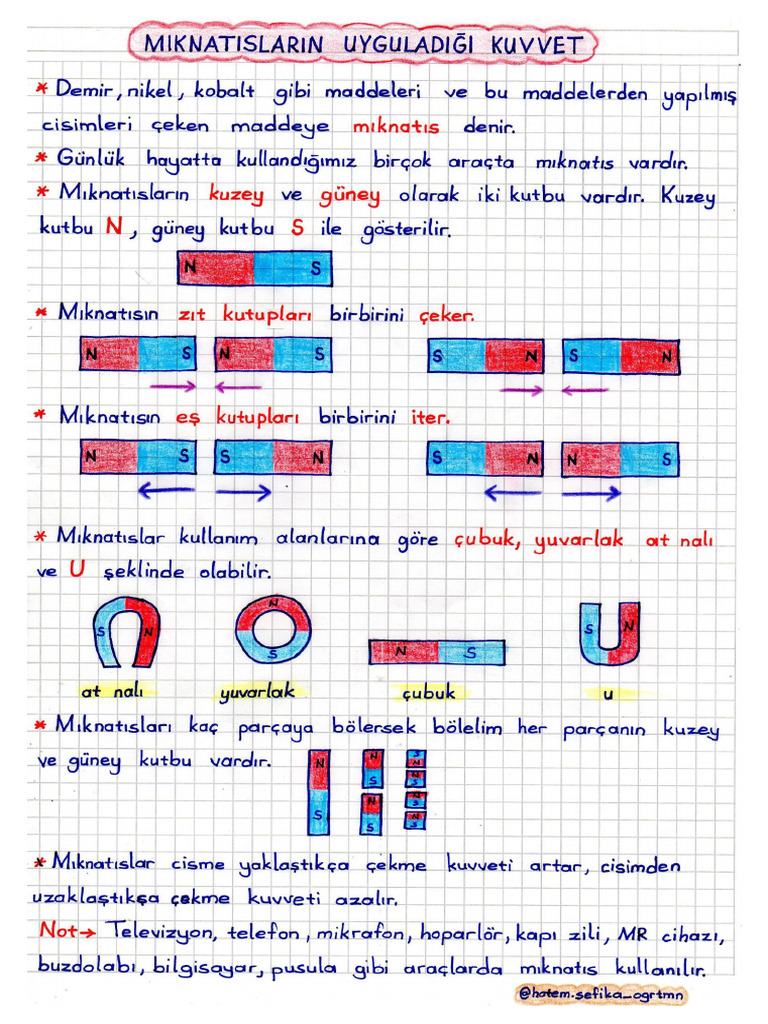 MIKNATISLARIN UYGULADIĞI KUVVET
* Demir, nikel, kobalt gibi maddeleri ve bu maddelerden yapılmış
cisimleri çeken maddeye mıknatıs denir.
* Günlük hayatta kullandığımız birçok araçta mıknatıs vardır.
* Mıknatısların kuzey ve güney olarak iki kutbu vardır. Kuzey
kutbu N, güney kutbu S ile gösterilir.
N S
* Mıknatısın zıt kutupları birbirini çeker.
N S N S S N S N
* Mıknatısın eş kutupları birbirini iter.
N S S N S N N S
* Mıknatıslar kullanım alanlarına göre çubuk, yuvarlak at nalı
ve U şeklinde olabilir.
S N N S N S S N
at nalı yuvarlak çubuk u
* Mıknatısları kaç parçaya bölersek bölelim her parçanın kuzey
ve güney kutbu vardır.
N N S N
S N S
N N S
S S N S
* Mıknatıslar cisme yaklaştıkça çekme kuvveti artar, cisimden
uzaklaştıkça çekme kuvveti azalır.
Not→ Televizyon, telefon, mikrafon, hoparlör, kapı zili, MR cihazı,
buzdolabı, bilgisayar, pusula gibi araçlarda mıknatıs kullanılır.
@hatem.sefika_ogrtmn